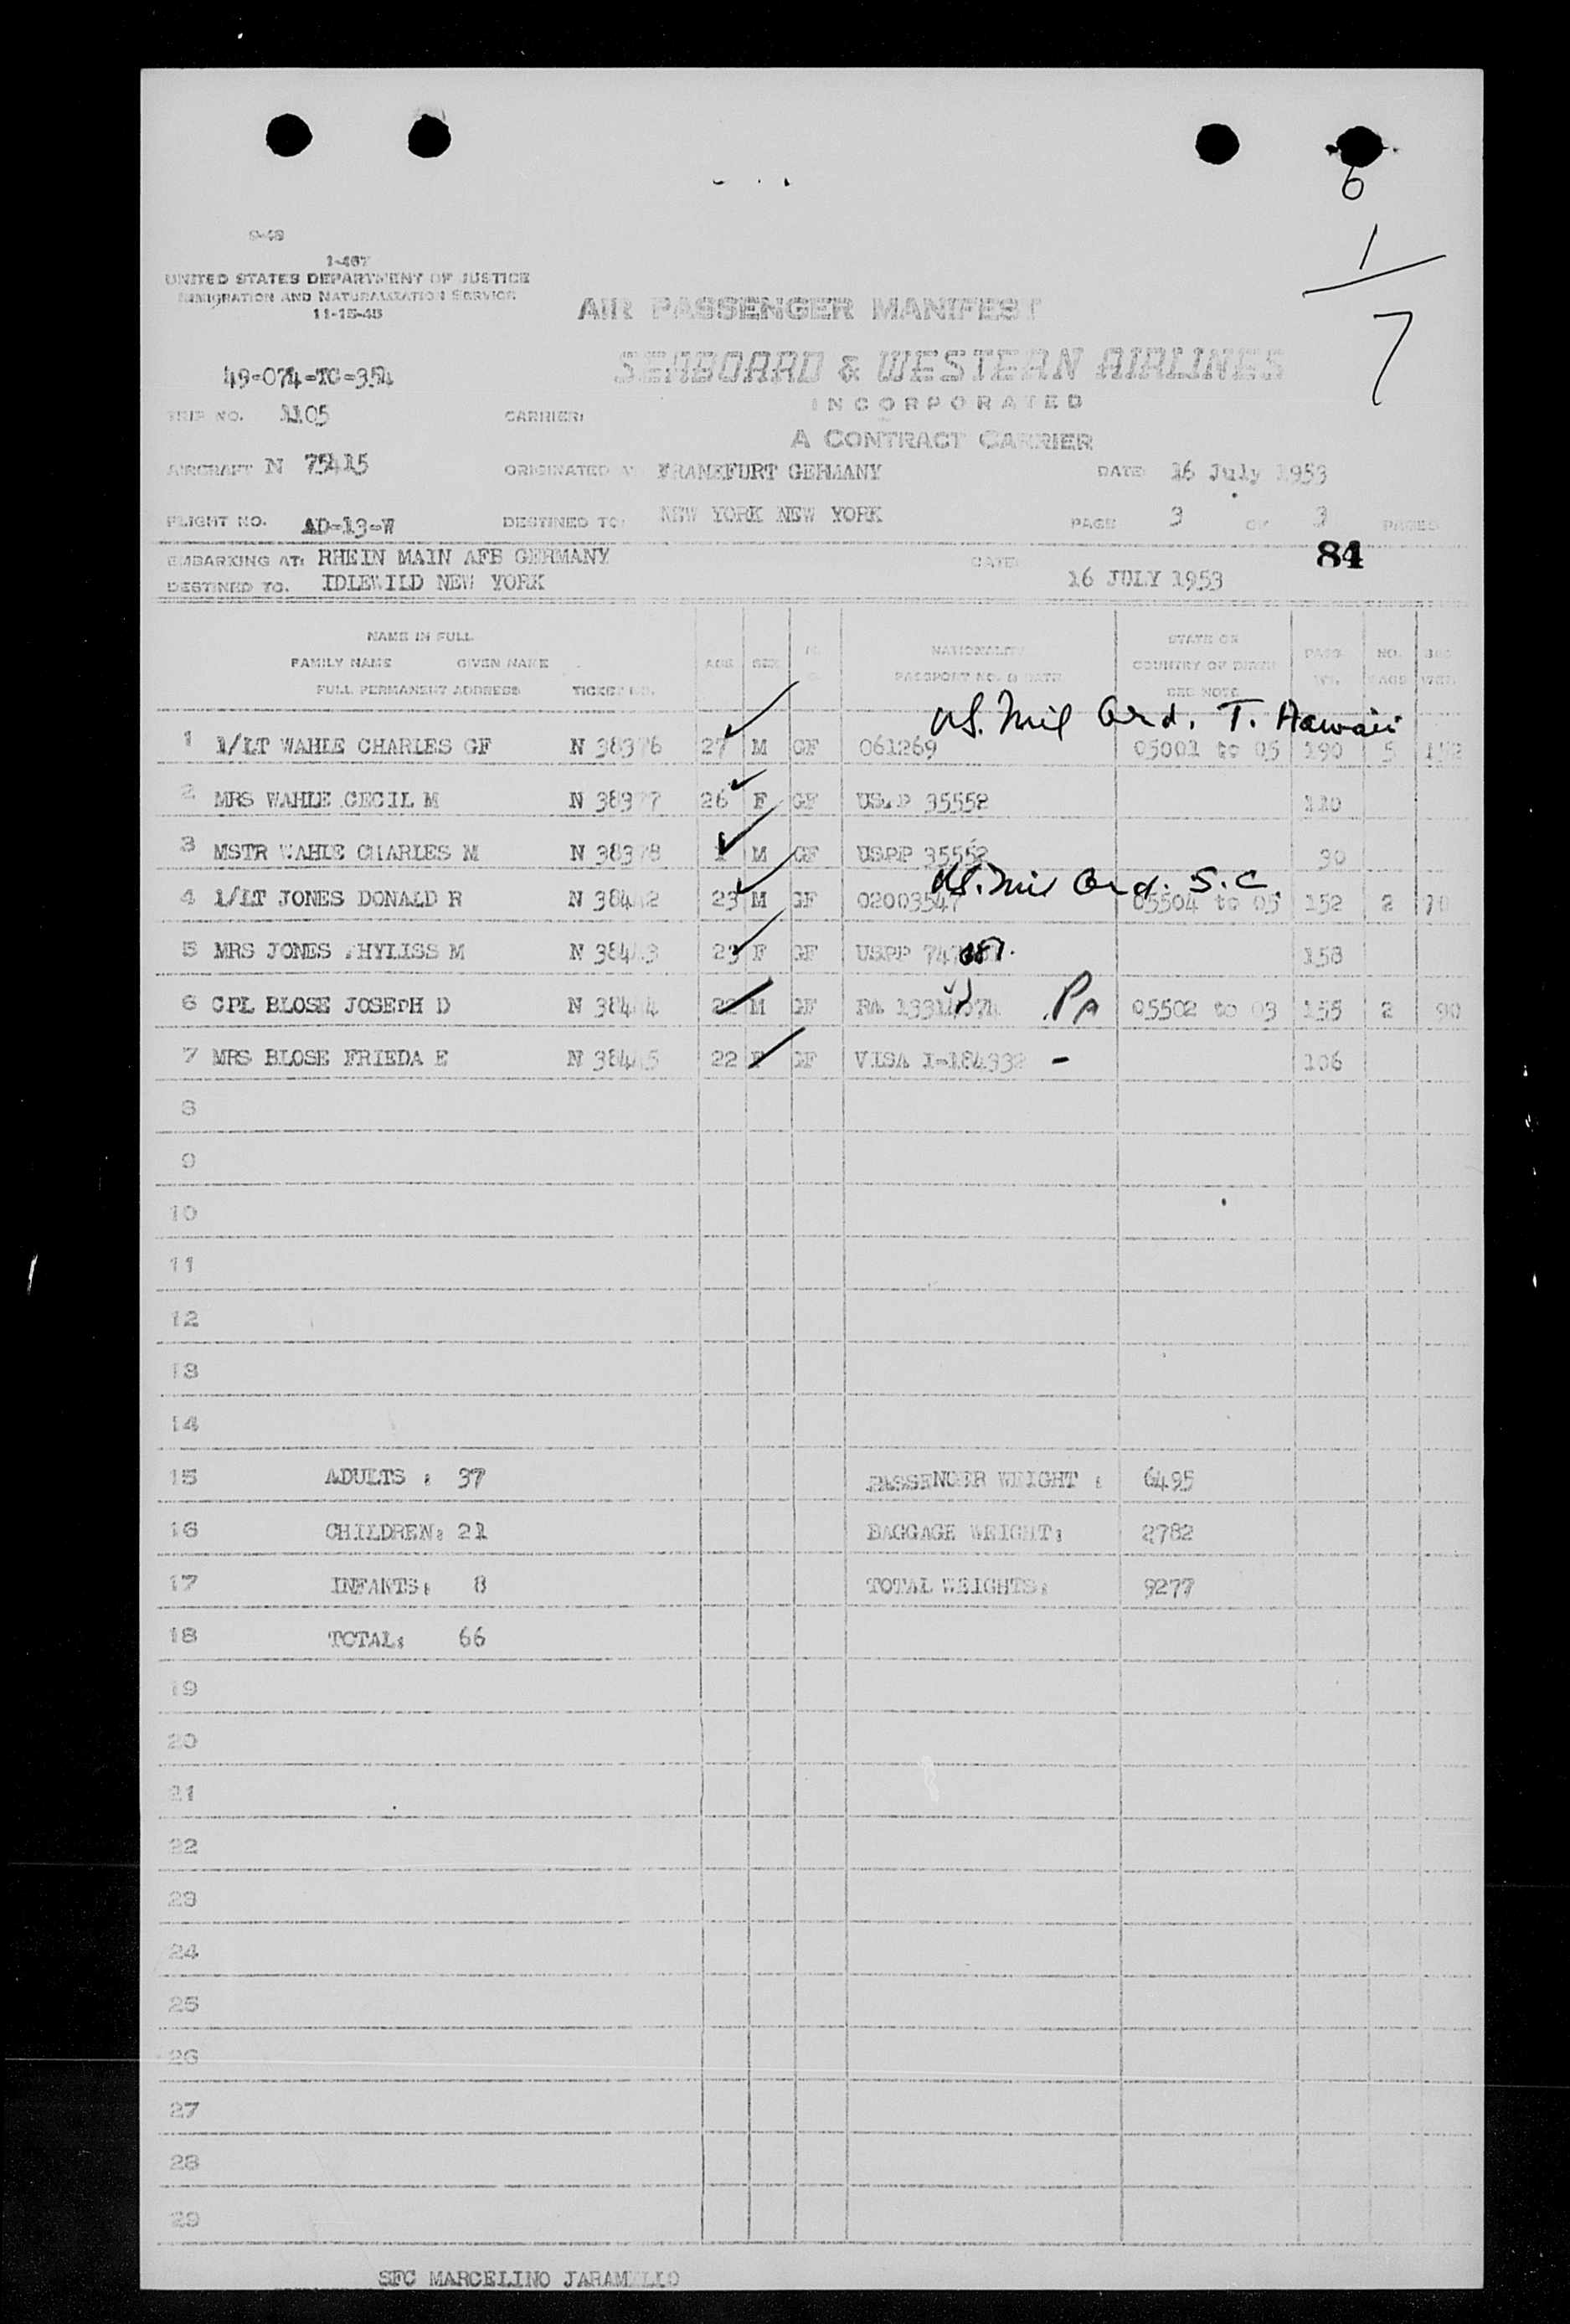 6
1
7
9-48
I-467
UNITED STATES DEPARTMENT OF JUSTICE
IMMIGRATION AND NATURALIZATION SERVICE
11-15-48
AIR PASSENGER MANIFEST
SEABOARD & WESTERN AIRLINES
INCORPORATED
A CONTRACT CARRIER
49-074-TC-354
TRIP NO. 1105 CARRIER:
AIRCRAFT N 75415 ORIGINATED AT FRANKFURT GERMANY DATE 16 July 1953
FLIGHT NO. AD-13-W DESTINED TO: NEW YORK NEW YORK PAGE 3 OF 3 PAGES
EMBARKING AT: RHEIN MAIN AFB GERMANY DATE: 16 JULY 1953 84
DESTINED TO. IDLEWILD NEW YORK
NAME IN FULL
FAMILY NAME GIVEN NAME AGE SEX NATIONALITY STATE OR COUNTRY OF BIRTH PASS. WT. NO. BAGS
FULL PERMANENT ADDRESS TICKET NO. PASSPORT NO. & DATE SEE NOTE
US. Mil Ord. T. Hawaii
1 1/LT WAHLE CHARLES GF N 38376 27 M GF 061269 05001 to 05 190 5
2 MRS WAHLE CECIL M N 38377 26 F GF 35552 110
3 MSTR WAHLE CHARLES M N 38378 1 M GF USPP 35552 30
US. Mil Ord. S.C.
4 1/LT JONES DONALD R N 23 M GF 02003547 05504 to 05 152 2
5 MRS JONES PHYLISS M N 23 F GF USPP 158
6 CPL BLOSE JOSEPH D N 22 M GF RA PA 05502 to 03 155 2 90
7 MRS BLOSE FRIEDA E N 22 F GF VISA I-184332 - 106
8
9
10
11
12
13
14
15 ADULTS : 37 PASSENGER WEIGHT : 6495
16 CHILDREN: 21 BAGGAGE WEIGHT: 2782
17 INFANTS: 8 TOTAL WEIGHTS: 9277
18 TOTAL: 66
19
20
21
22
23
24
25
26
27
28
29
SFC MARCELINO JARAMILLO